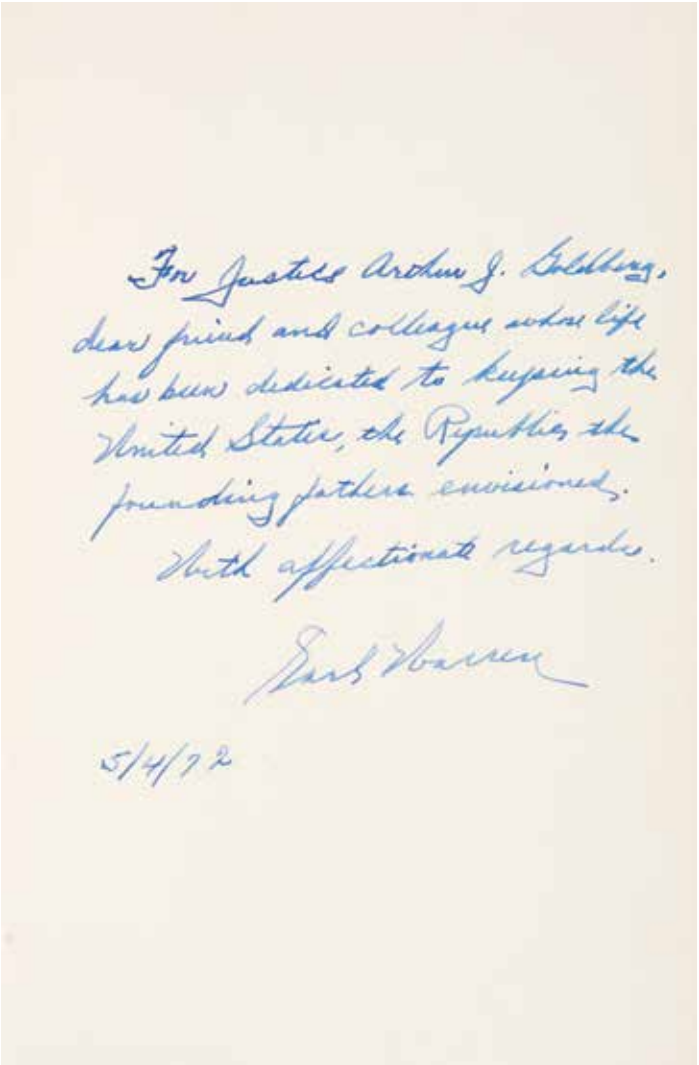 For Justice Arthur J. Goldberg,
dear friend and colleague whose life
has been dedicated to keeping the
United States, the Republic the
founding fathers envisioned.
With affectionate regards.
Earl Warren
5/4/72